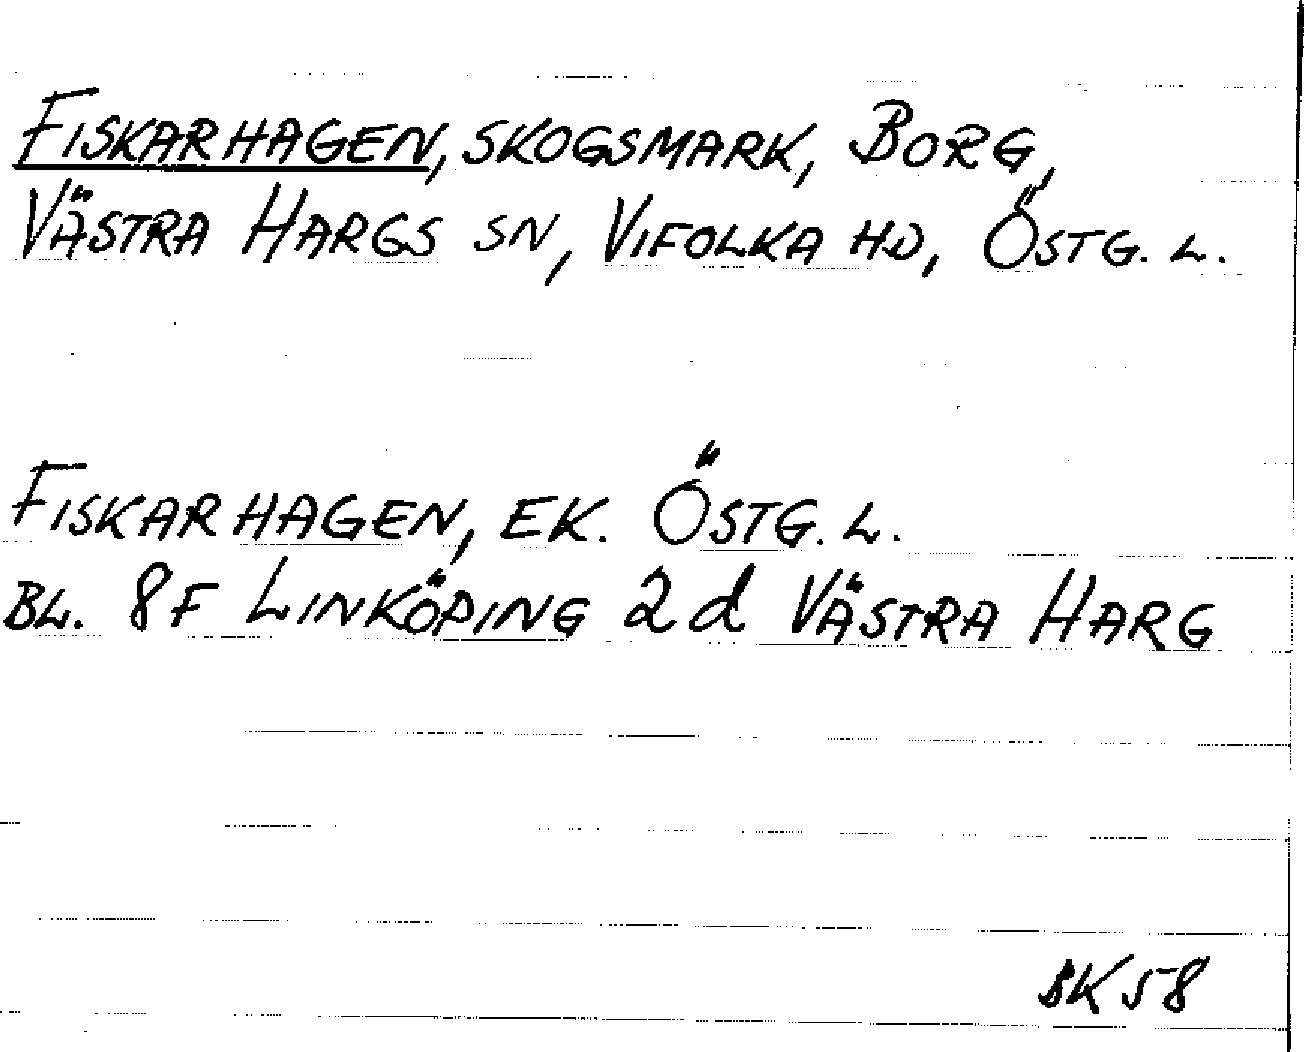 FISKARHAGEN, SKOGSMARK, BORG,
VÄSTRA HARGS SN, VIFOLKA HD, ÖSTG. L.
FISKARHAGEN, EK. ÖSTG. L.
BL. 8F LINKÖPING 2d VÄSTRA HARG
BK 58